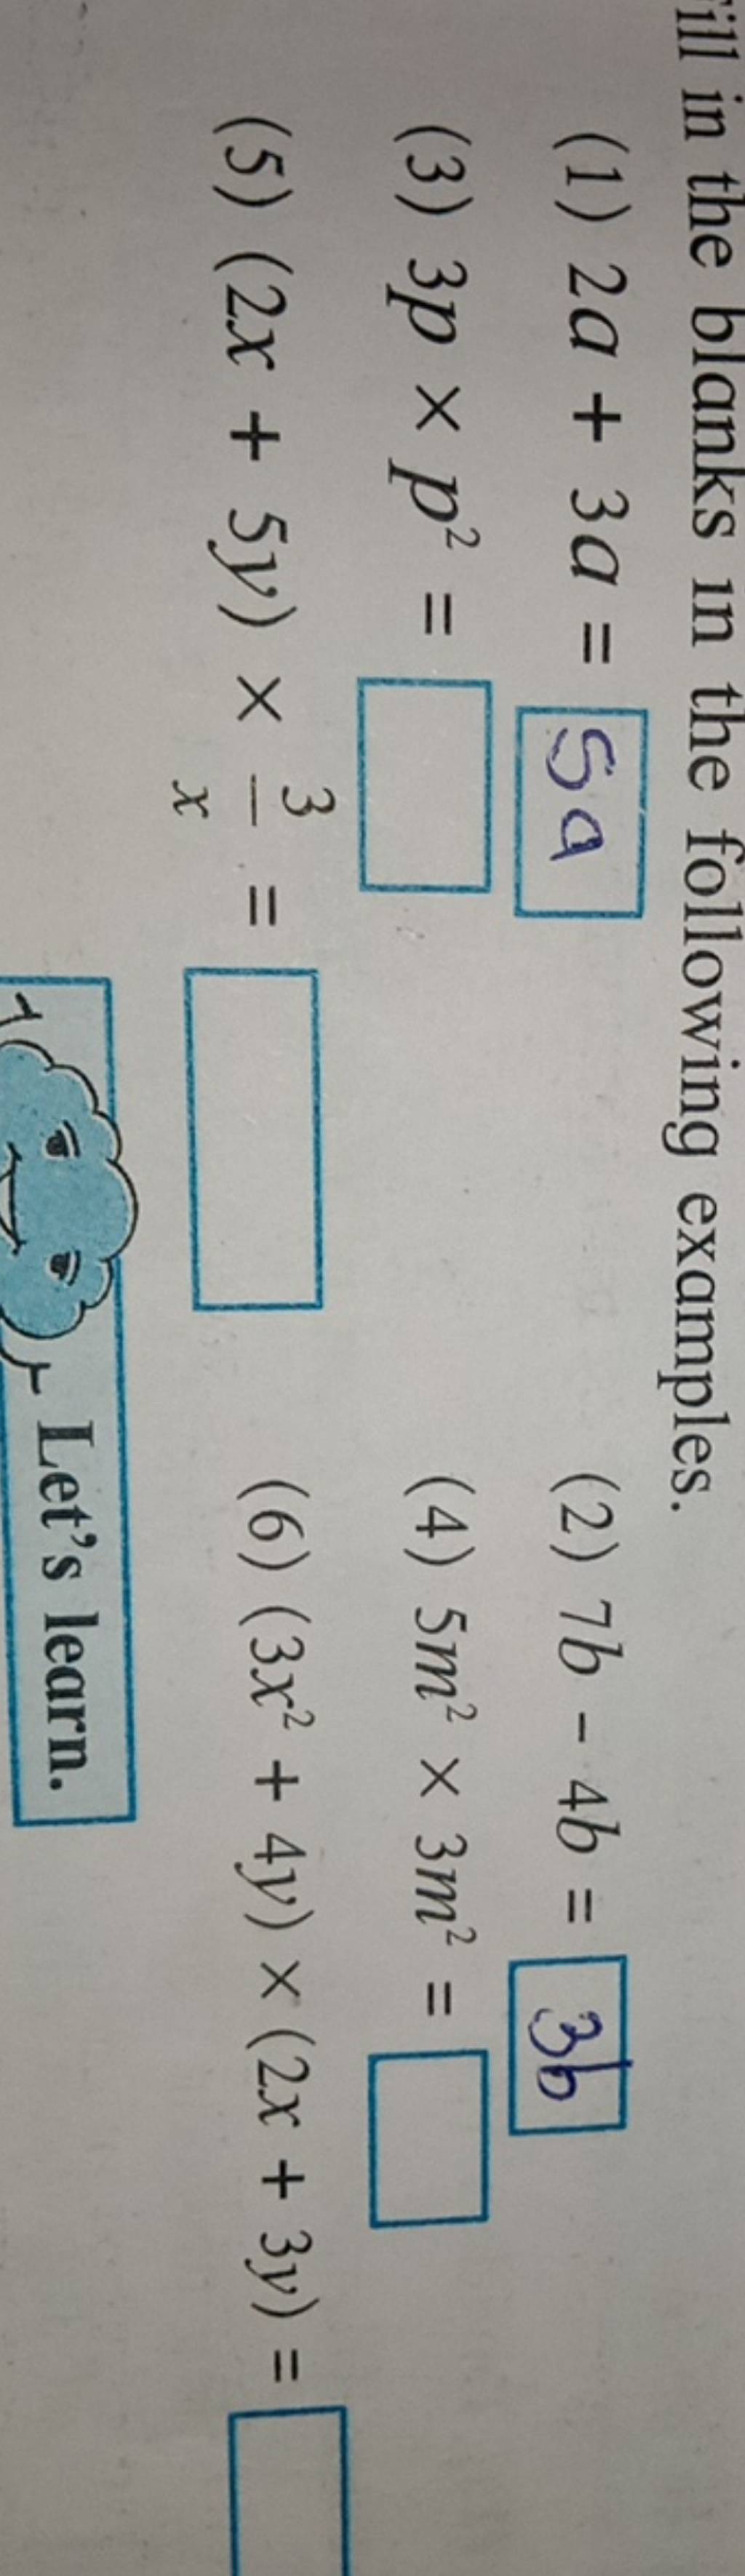 ill in the blanks in the following examples.
(1) 2a + 3a = 5a (2) 7b - 4b = 3b
(3) 3p × p² = (4) 5m² × 3m² =
(5) (2x + 5y) × 3/x = (6) (3x² + 4y) × (2x + 3y) =
Let's learn.